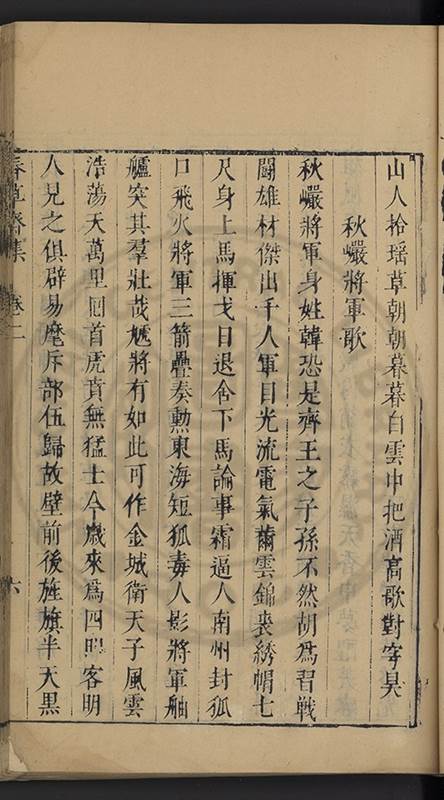 山人拾瑶草朝朝暮暮白雲中把酒高歌對穹昊
秋巖將軍歌
秋巖將軍身姓韓恐是齊王之子孫不然胡爲習戰
鬪雄材傑出千人軍目光流電氣薾雲錦裘綉帽七
尺身上馬揮戈日退舍下馬論事霜逼人南州封狐
口飛火將軍三箭疊奏勲東海短狐毒人影將軍舳
艫突其羣壯哉虓將有如此可作金城衛天子風雲
浩蕩天萬里回首虎賁無猛士今歲來爲四明客明
人見之俱辟易麾斥部伍歸故壁前後旌旗半天黑
春草齋集 卷二 六